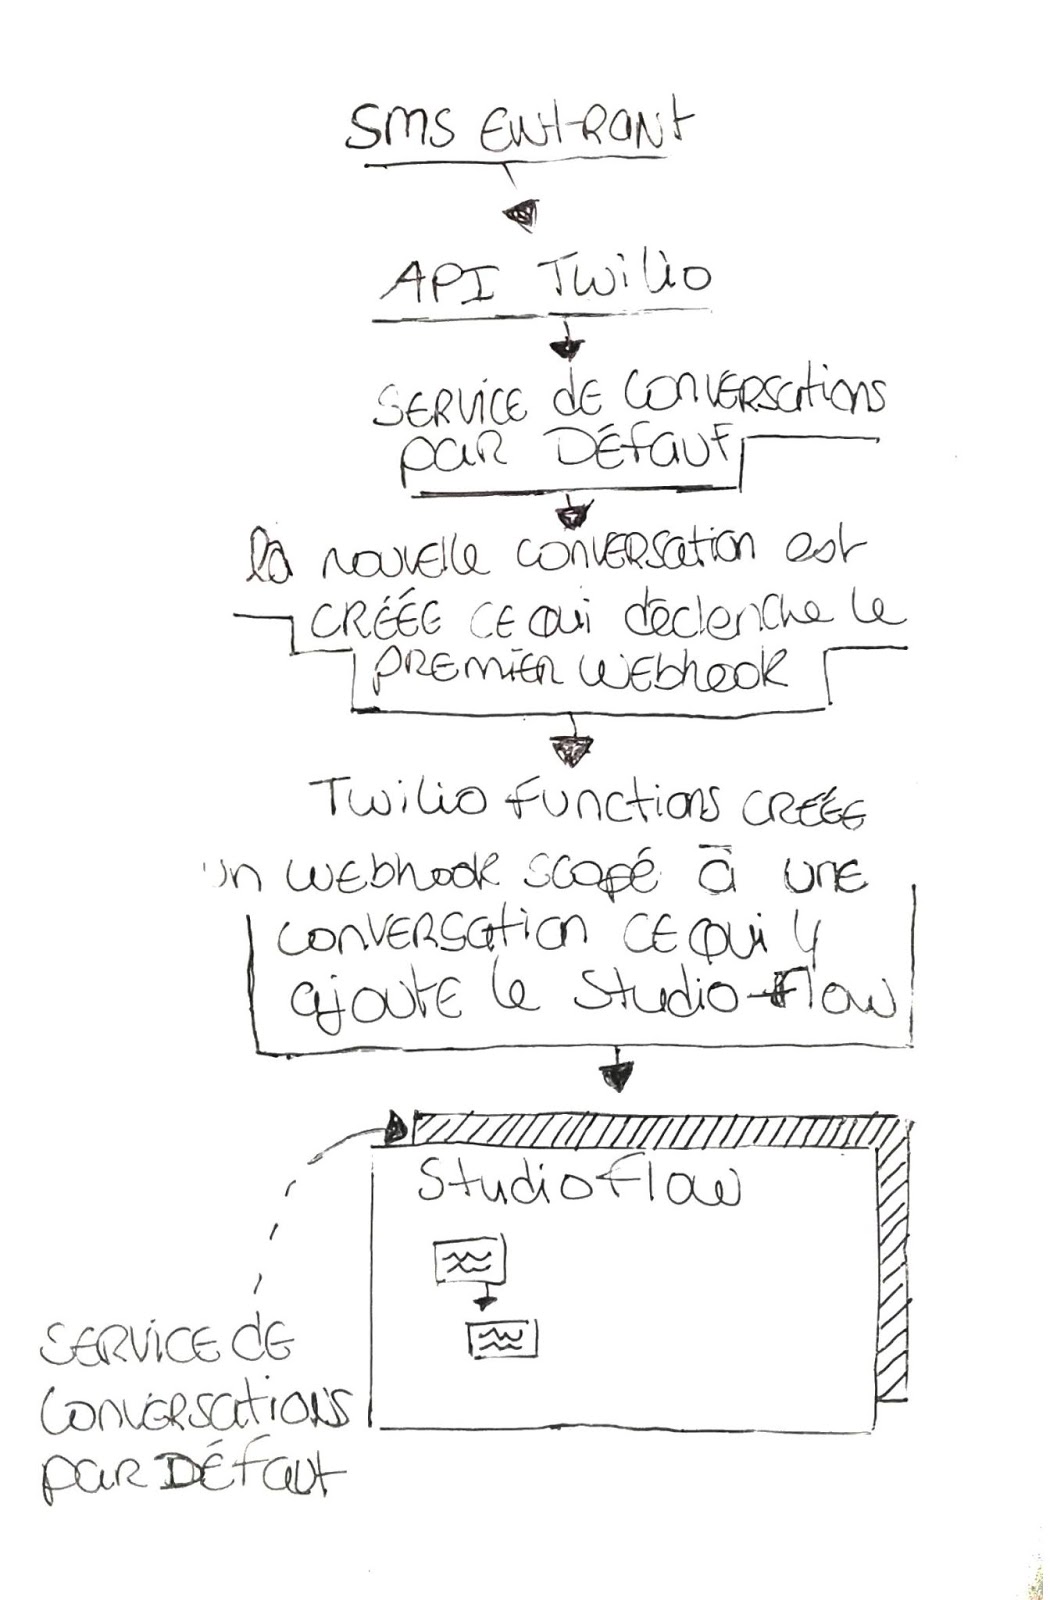 SMS ENTRANT
API Twilio
SERVICE DE CONVERSATIONS
PAR DÉFAUT
la NOUVELLE CONVERSATION est
CRÉÉE CE QUI déclenche le
PREMIER WEbhook
Twilio FUNCTIONS CRÉÉE
un WEbhook scopé à UNE
CONVERSATION CE QUI Y
AJOUTE le Studio Flow
Studio Flow
SERVICE DE
CONVERSATIONS
PAR DÉFAUT